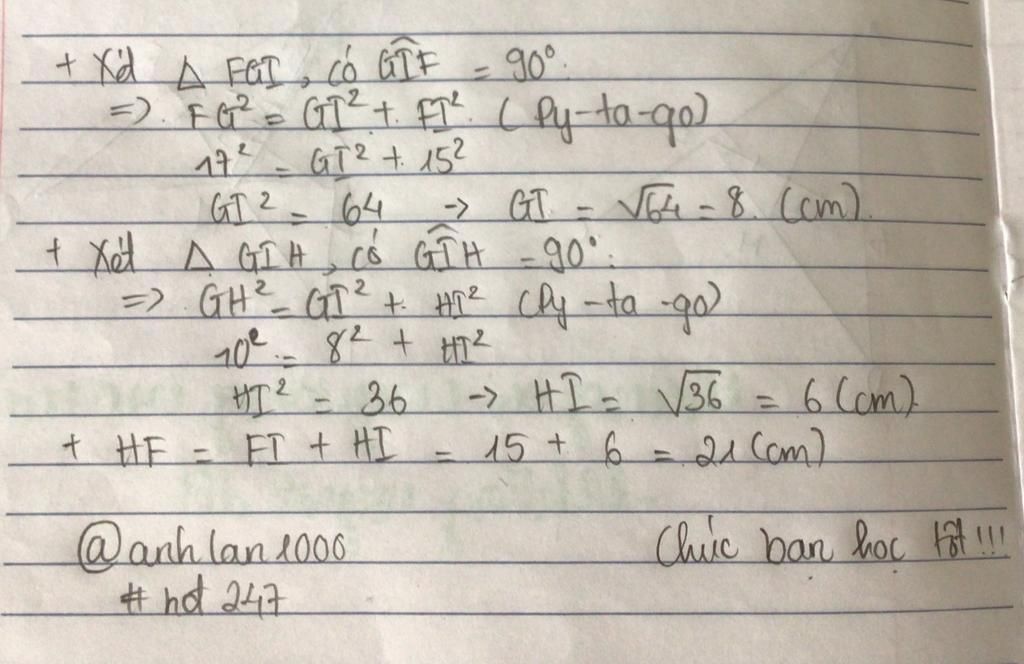 + Xét Δ FGI, có \widehat{GIF} = 90°.
=> FG² = GI² + FI² (Py-ta-go)
17² = GI² + 15²
GI² = 64 → GI = √64 = 8 (cm).
+ Xét Δ GIH, có \widehat{GIH} = 90°:
=> GH² = GI² + HI² (Py-ta-go)
10² = 8² + HI²
HI² = 36 → HI = √36 = 6 (cm).
+ HF = FI + HI = 15 + 6 = 21 (cm)
@anhlan1006 Chúc bạn học tốt!!!
# hd 247